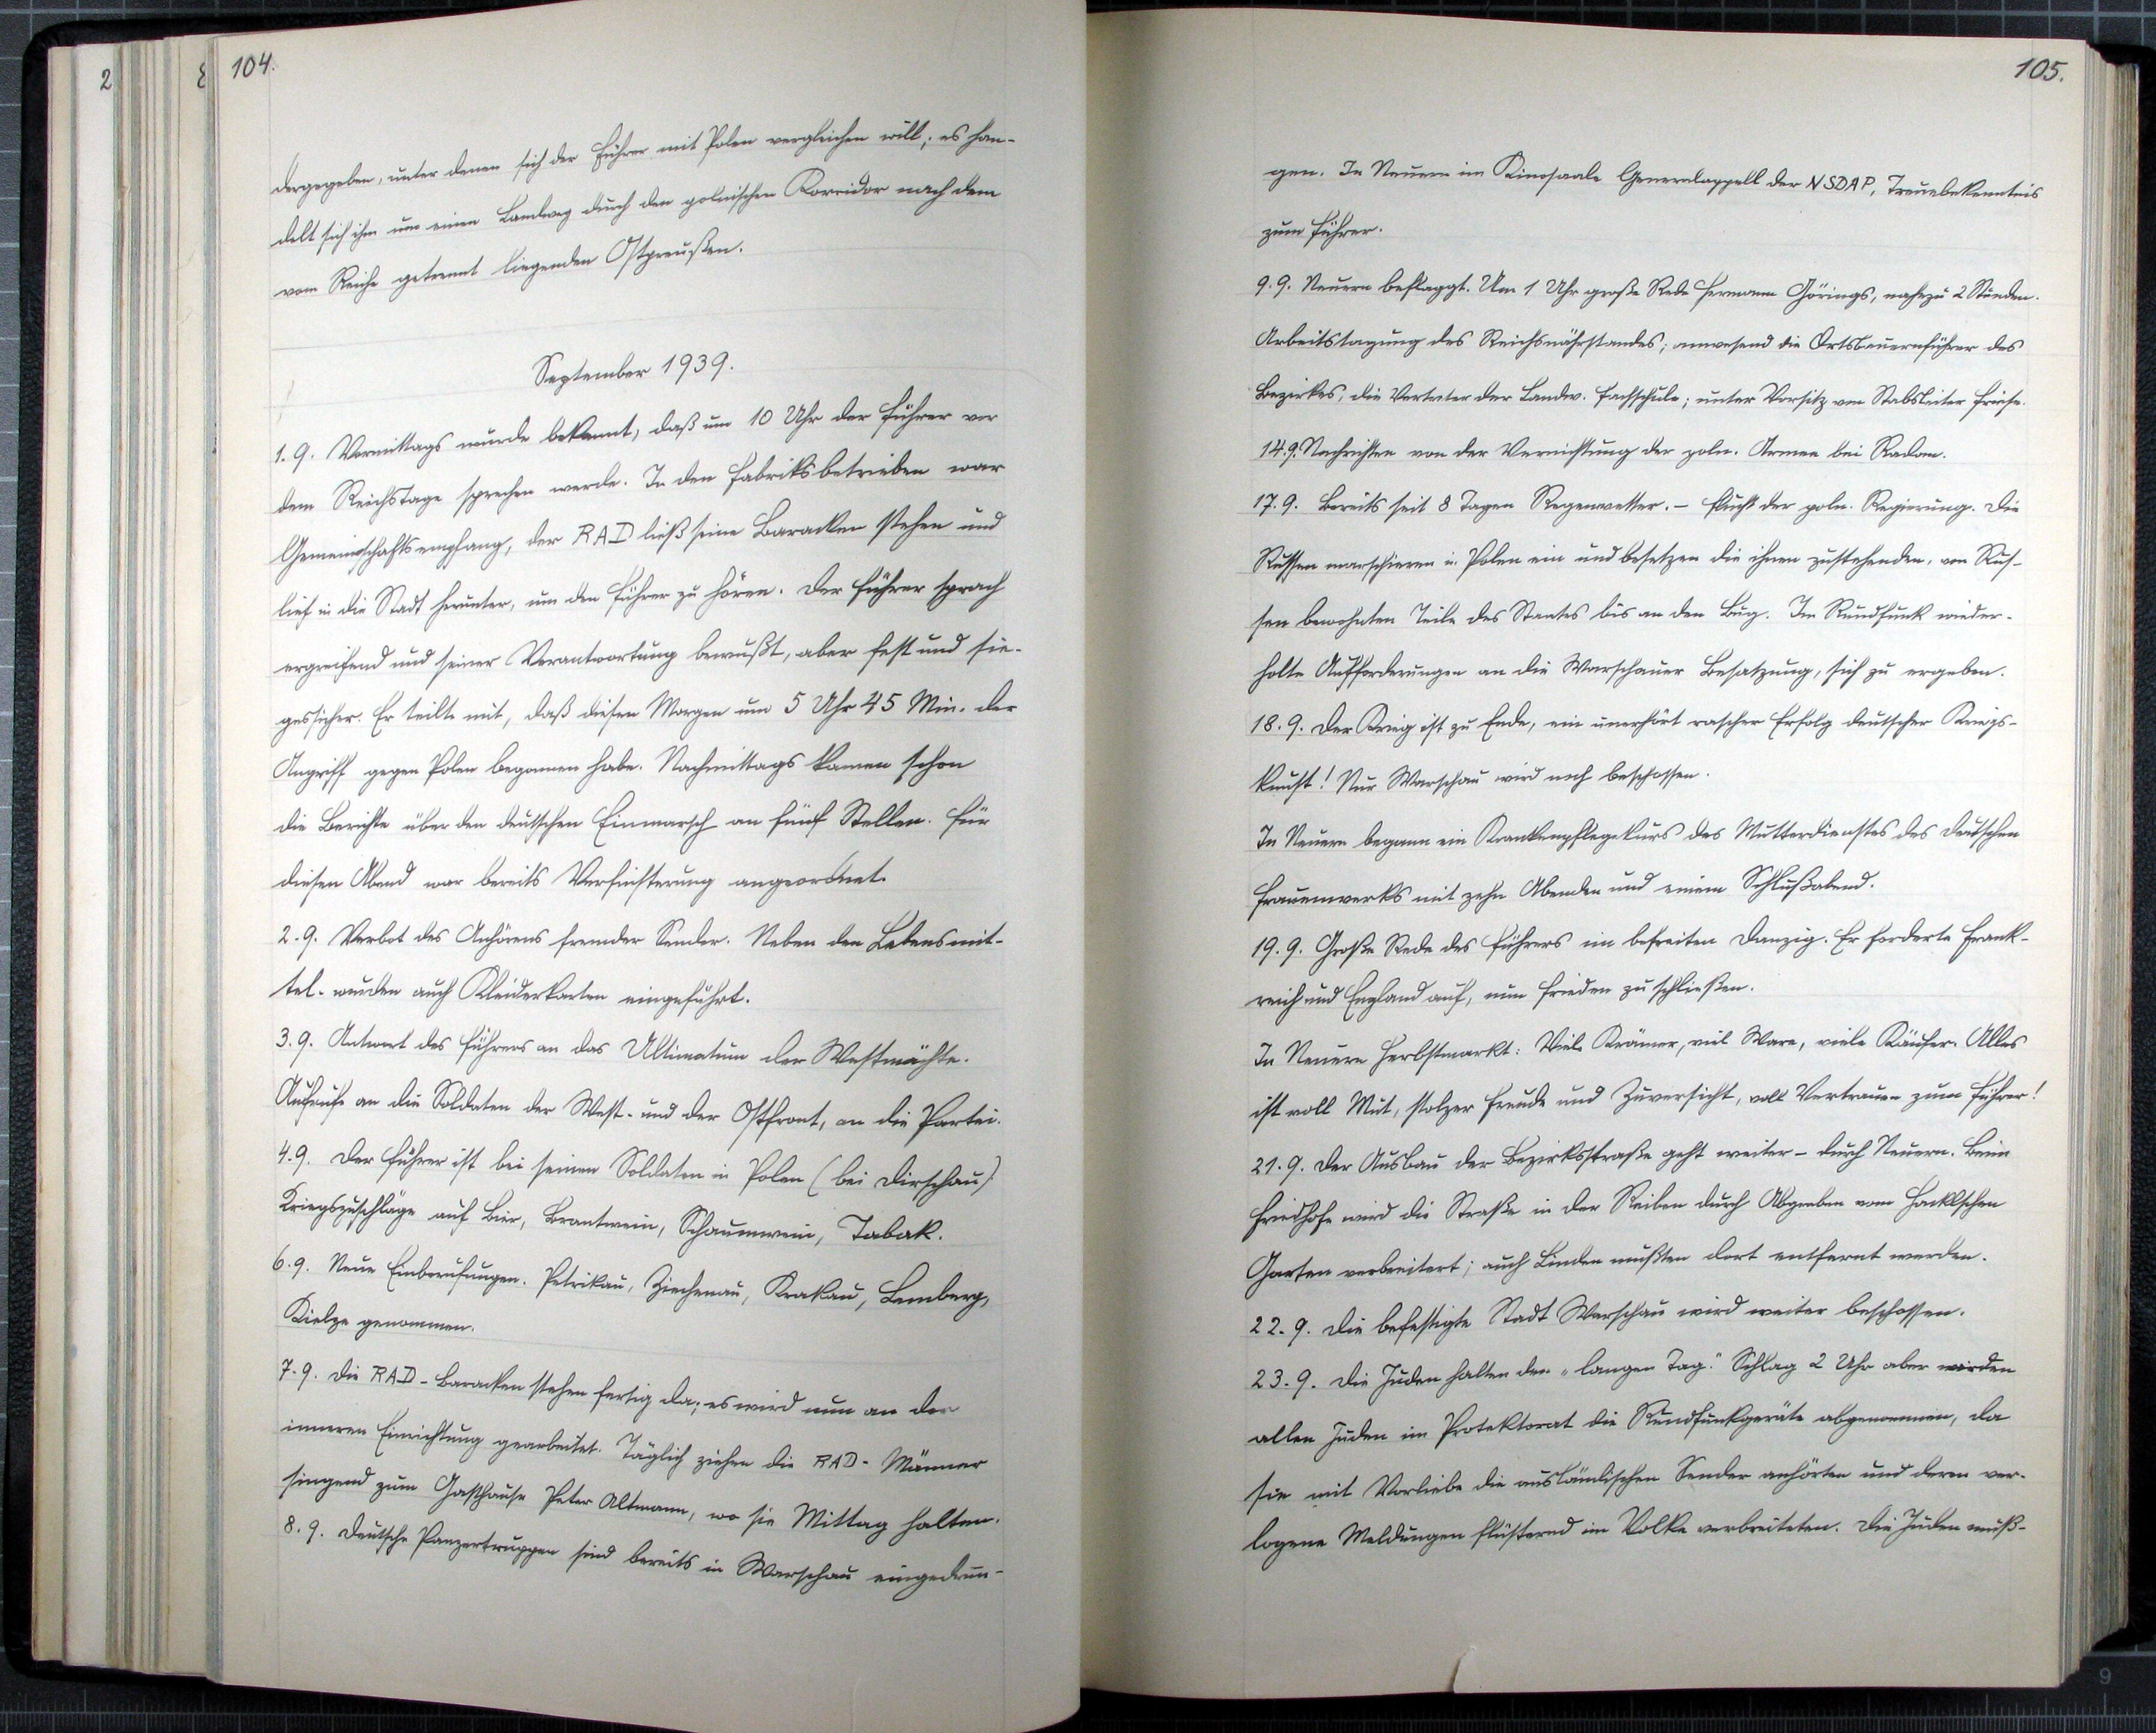 104.
dergegeben, unter denen sich der Führer mit Polen vergleichen will; es han-
delt sich ihm um einen Landweg durch den polnischen Korridor nach dem
vom Reiche getrennt liegenden Ostpreußen.
September 1939.
1. 9. Vormittags wurde bekannt, daß um 10 Uhr der Führer vor
dem Reichstage sprechen werde. In den Fabriksbetrieben war
Gemeinschaftsempfang, der RAD ließ seine Baracken stehen und
lief in die Stadt herunter, um den Führer zu hören. Der Führer sprach
ergreifend und seiner Verantwortung bewußt, aber fest und sie-
gessicher. Er teilte mit, daß diesen Morgen um 5 Uhr 45 Min. der
Angriff gegen Polen begonnen habe. Nachmittags kamen schon
die Berichte über den deutschen Einmarsch an fünf Stellen. Für
diesen Abend war bereits Verfinsterung angeordnet.
2. 9. Verbot des Anhörens fremder Sender. Neben den Lebensmit-
tel- wurden auch Kleiderkarten eingeführt.
3. 9. Antwort des Führers an das Ultimatum der Westmächte.
Aufrufe an die Soldaten der West- und der Ostfront, an die Partei.
4. 9. Der Führer ist bei seinen Soldaten in Polen (bei Dirschau).
Kriegszuschläge auf Bier, Brantwein, Schaumwein, Tabak.
6. 9. Neue Einberufungen. Petrikau, Ziechenau, Krakau, Lemberg,
Kielze genommen.
7. 9. Die RAD-Baracken stehen fertig da; es wird nun an der
inneren Einrichtung gearbeitet. Täglich ziehen die RAD-Männer
singend zum Gasthause Peter Altmann, wo sie Mittag halten.
8. 9. Deutsche Panzertruppen sind bereits in Warschau eingedrun-
105.
gen. In Neuern im Kinosaale Generalappell der NSDAP, Treuebekenntnis
zum Führer.
9. 9. Neuern beflaggt. Um 1 Uhr große Rede Hermann Görings, nahezu 2 Stunden.
Arbeitstagung des Reichsnährstandes; anwesend die Ortsbauernführer des
Bezirkes, die Vertreter der Landw. Fachschule; unter Vorsitz von Stabsleiter
14. 9. Nachrichten von der Vernichtung der poln. Armee bei Radom.
17. 9. Bereits seit 8 Tagen Regenwetter. – Flucht der poln. Regierung. Die
Russen marschieren in Polen ein und besetzen die ihnen zustehenden, von Rus-
sen bewohnten Teile des Staates bis an den Bug. Im Rundfunk wieder-
holte Aufforderungen an die Warschauer Besatzung, sich zu ergeben.
18. 9. Der Krieg ist zu Ende, ein unerhört rascher Erfolg deutscher Kriegs-
kunst! Nur Warschau wird noch beschossen.
In Neuern begann ein Krankenpflegekurs des Mutterdienstes des Deutschen
Frauenwerks mit zehn Abenden und einem Schlußabend.
19. 9. Große Rede des Führers im befreiten Danzig. Er forderte Frank-
reich und England auf, nun Frieden zu schließen.
In Neuern Herbstmarkt: Viele Krämer, viel Ware, viele Käufer. Alles
ist voll Mut, stolzer Freude und Zuversicht, voll Vertrauen zum Führer!
21. 9. Der Ausbau der Bezirksstraße geht weiter – durch Neuern. Beim
Friedhofe wird die Straße in der Reiben durch Abgraben vom Hacklschen
Garten verbreitert; auch Linden mußten dort entfernt werden.
22. 9. Die befestigte Stadt Warschau wird weiter beschossen.
23. 9. Die Juden halten den „langen Tag." Schlag 2 Uhr aber wurden
allen Juden im Protektorat die Rundfunkgeräte abgenommen, da
sie mit Vorliebe die ausländischen Sender anhörten und deren ver-
logene Meldungen flüsternd im Volke verbreiteten. Die Juden muß-